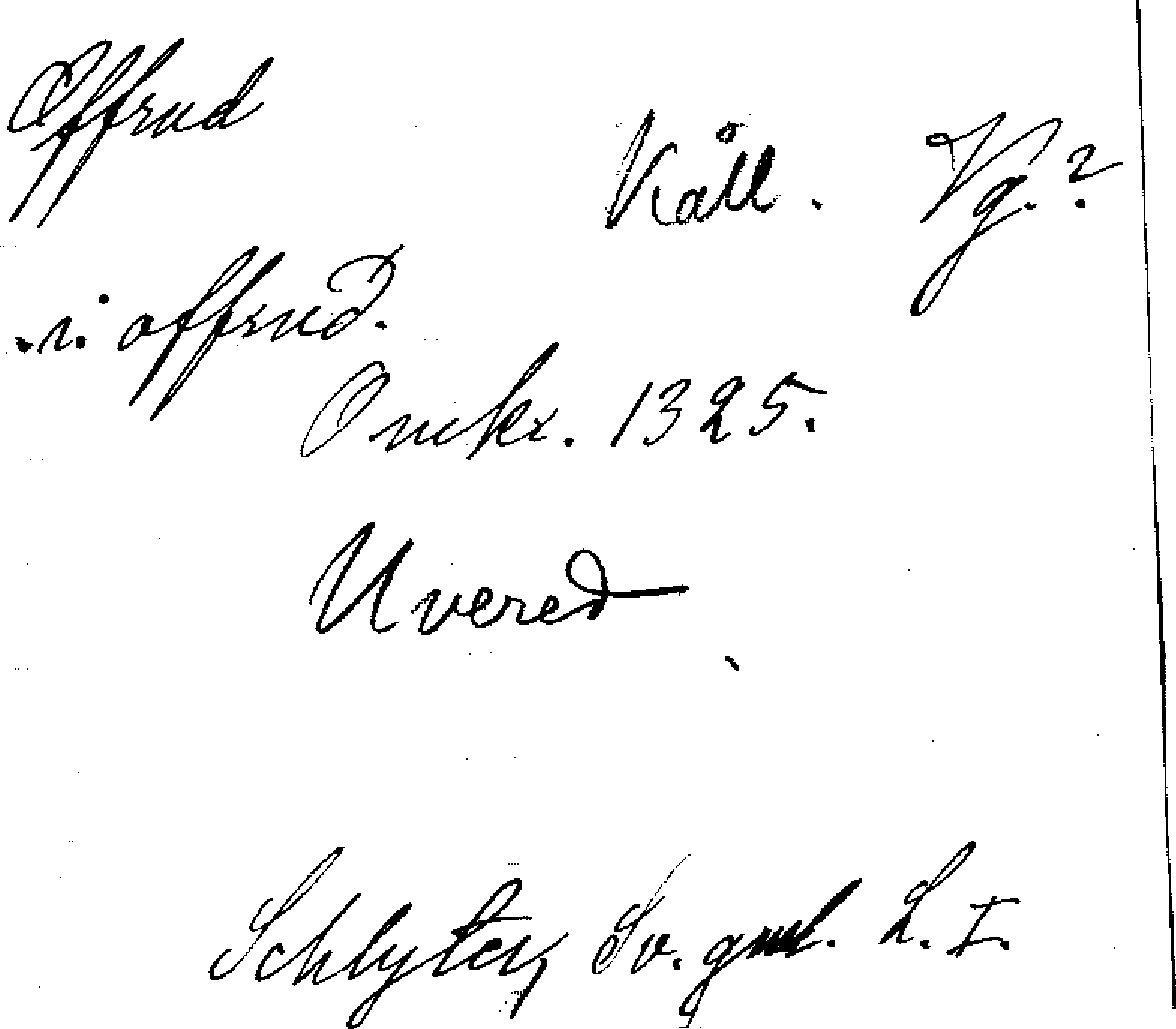 Offrud
Kåll. Vg.?
.i. offrud.
Omkr. 1325.
Uvered
Schlyter, Sv. gml. L. I.